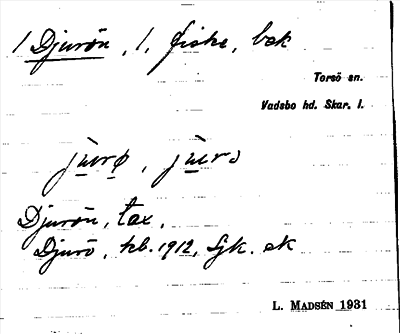 1 Djurön, 1, fiske, bek
Torsö sn.
Vadsbo hd. Skar. l.
jùurø, jùurɔ
Djurön, tax,
Djurö, hb. 1912, Sjk. ek
L. MADSÉN 1931